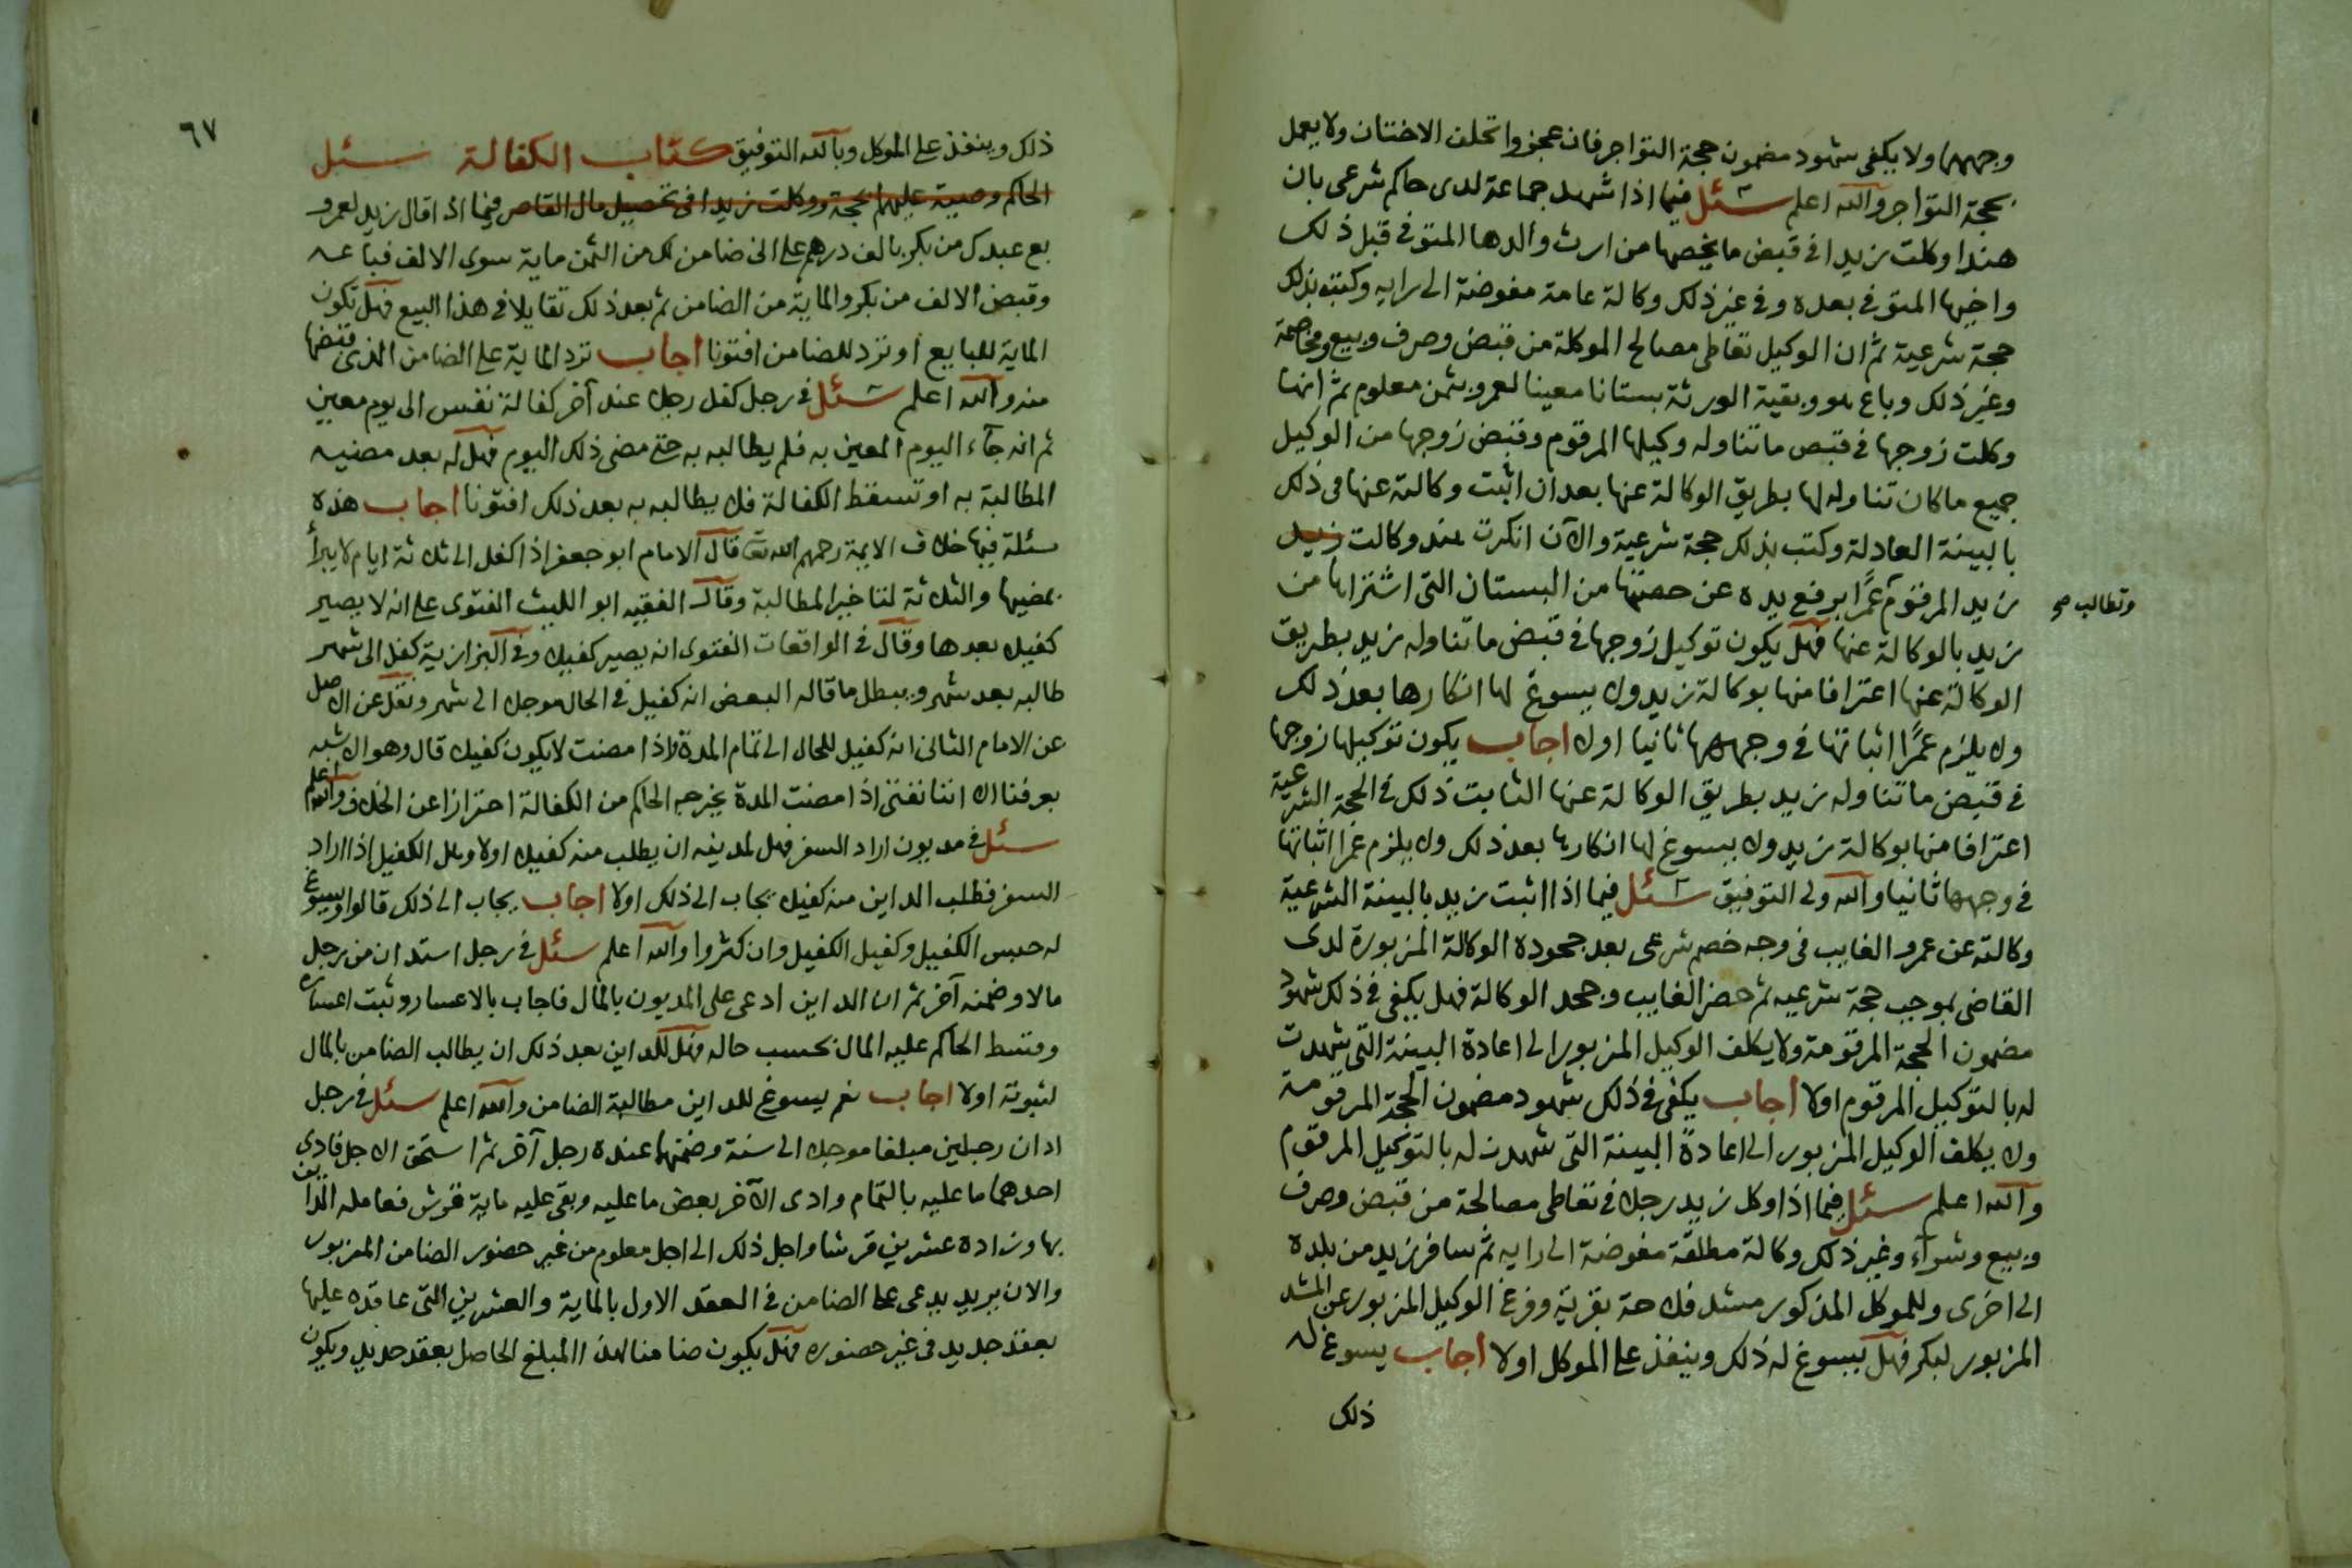 وجههما ولا يكفى شهود مضمون حجة التواجر فان عجزوا تحلف الاختان ولا يعمل
بحجة التواجر والله اعلم سئل فيما اذا شهد جماعة لدى حاكم شرعى بان
هندا وكلت زيدا فى قبض ما يخصها من ارث والدها المتوفى قبل ذلك
واخيها المتوفى بعده وفى غير ذلك وكالة عامة مفوضة الى رايه وكتب بذلك
حجة شرعية ثم ان الوكيل تعاطى مصالح الموكلة من قبض وصرف وبيع ومخاصمة
وغير ذلك وباع هو وبقية الورثة بستانا معينا لعمرو بثمن معلوم ثم انها
وكلت زوجها فى قبض ما تناوله وكيلها المرقوم وقبض زوجها من الوكيل
جميع ما كان تناوله لها بطريق الوكالة عنها بعد ان اثبت وكالته عنها فى ذلك
بالبينة العادلة وكتب بذلك حجة شرعية والآن انكرت هند وكالت زيد
وتطالب صح
زيد المرقوم عمرا برفع يده عن حصتها من البستان التى اشتراها من
زيد بالوكالة عنها فهل يكون توكيل زوجها فى قبض ما تناوله زيد بطريق
الوكالة عنها اعترافا منها بوكالة زيد ولا يسوغ لها انكارها بعد ذلك
ولا يلزم عمرا اثباتها فى وجهها ثانيا اولا اجاب يكون توكيلها زوجها
فى قبض ما تناوله زيد بطريق الوكالة عنها الثابت ذلك فى الحجة الشرعية
اعترافا منها بوكالة زيد ولا يسوغ لها انكارها بعد ذلك ولا يلزم عمرا اثباتها
فى وجهها ثانيا والله ولى التوفيق سئل فيما اذا اثبت زيد بالبينة الشرعية
وكالته عن عمرو الغايب فى وجه خصم شرعى بعد جحوده الوكالة المزبورة لدى
القاضى بموجب حجة شرعيه ثم حضر الغايب وجحد الوكالة فهل يكفى فى ذلك شهود
مضمون الحجة المرقومة ولا يكلف الوكيل المزبور الى اعادة البينة التى شهدت
له بالتوكيل المرقوم اولا اجاب يكفى فى ذلك شهود مضمون الحجة المرقومة
ولا يكلف الوكيل المزبور الى اعادة البينة التى شهدت له بالتوكيل المرقوم
والله اعلم سئل فيما اذا وكل زيد رجلا فى تعاطى مصالحة من قبض وصرف
وبيع وشرآء وغير ذلك وكالة مطلقة مفوضة الى رايه ثم سافر زيد من بلده
الى اخرى وللموكل المذكور مشد فلاحة بقرية وفرغ الوكيل المزبور عن المشد
المزبور لبكر فهل يسوغ له ذلك وينفذ على الموكل اولا اجاب يسوغ له
ذلك
٦٧
ذلك وينفذ على الموكل وبالله التوفيق كتاب الكفالة سئل
الحاكم وصية عليهم بحجة ووكلت زيدا فى تحصيل مال القاصر فيما اذا قال زيد لعمرو
بع عبدك من بكر بالف درهم على انى ضامن لك من الثمن ماية سوى الالف فباعه
وقبض الالف من بكر والماية من الضامن ثم بعد ذلك تقايلا فى هذا البيع فهل تكون
الماية للبايع او ترد للضامن افتونا اجاب ترد الماية على الضامن الذى قبضها
منه والله اعلم سئل فى رجل كفل رجلا عند آخر كفالة نفس الى يوم معين
ثم انه جآء اليوم المعين به فلم يطالبه به حتى مضى ذلك اليوم فهل له بعد مضيه
المطالبة به او تسقط الكفالة فلا يطالبه به بعد ذلك افتونا اجاب هذه
مسئلة فيها خلاف الايمة رحمهم الله تعا قال الامام ابو جعفر اذا كفل الى ثلاثة ايام لا يبرأ
بمضيها والثلاثة لتاخير المطالبة وقال الفقيه ابو الليث الفتوى على انه لا يصير
كفيلا بعدها وقال فى الواقعات الفتوى انه يصير كفيلا وفى البزازية كفل الى شهر
طالبه بعد شهر ويبطل ما قاله البعض انه كفيل فى الحال موجلا الى شهر ونقل عن الاصل
عن الامام الثانى انه كفيل للحال الى تمام المدة واذا مضت لا يكون كفيلا قال وهو الاشبه
بعرفنا الا اننا نفتى اذا مضت المدة يخرجه الحاكم من الكفالة احترازا عن الخلاف والله اعلم
سئل فى مديون اراد السفر فهل لمدينه ان يطلب منه كفيلا اولا وهل الكفيل اذا اراد
السفر فطلب الداين منه كفيلا يجاب الى ذلك اولا اجاب يجاب الى ذلك قالوا ويسوغ
له حبس الكفيل وكفيل الكفيل وان كثروا والله اعلم سئل فى رجل استدان من رجل
مالا وضمنه آخر ثم ان الداين ادعى على المديون بالمال فاجاب بالاعسار وثبت اعساره
وقسط الحاكم عليه المال بحسب حاله فهل للداين بعد ذلك ان يطالب الضامن بالمال
لثبوته اولا اجاب نعم يسوغ للداين مطالبة الضامن والله اعلم سئل فى رجل
ادان رجلين مبلغا موجلا الى سنة وضمنهما عنده رجل آخر ثم استحق الاجل فادى
احدهما ما عليه بالتمام وادى الآخر بعض ما عليه وبقى عليه ماية قرش فعامله الداين
بها وزاده عشرين قرشا واجل ذلك الى اجل معلوم من غير حضور الضامن المزبور
والان يريد يدعى على الضامن فى العقد الاول بالماية والعشرين التى عاقده عليها
بعقد جديد فى غير حضوره فهل يكون ضامنا لهذا المبلغ الحاصل بعقد جديد ويكون